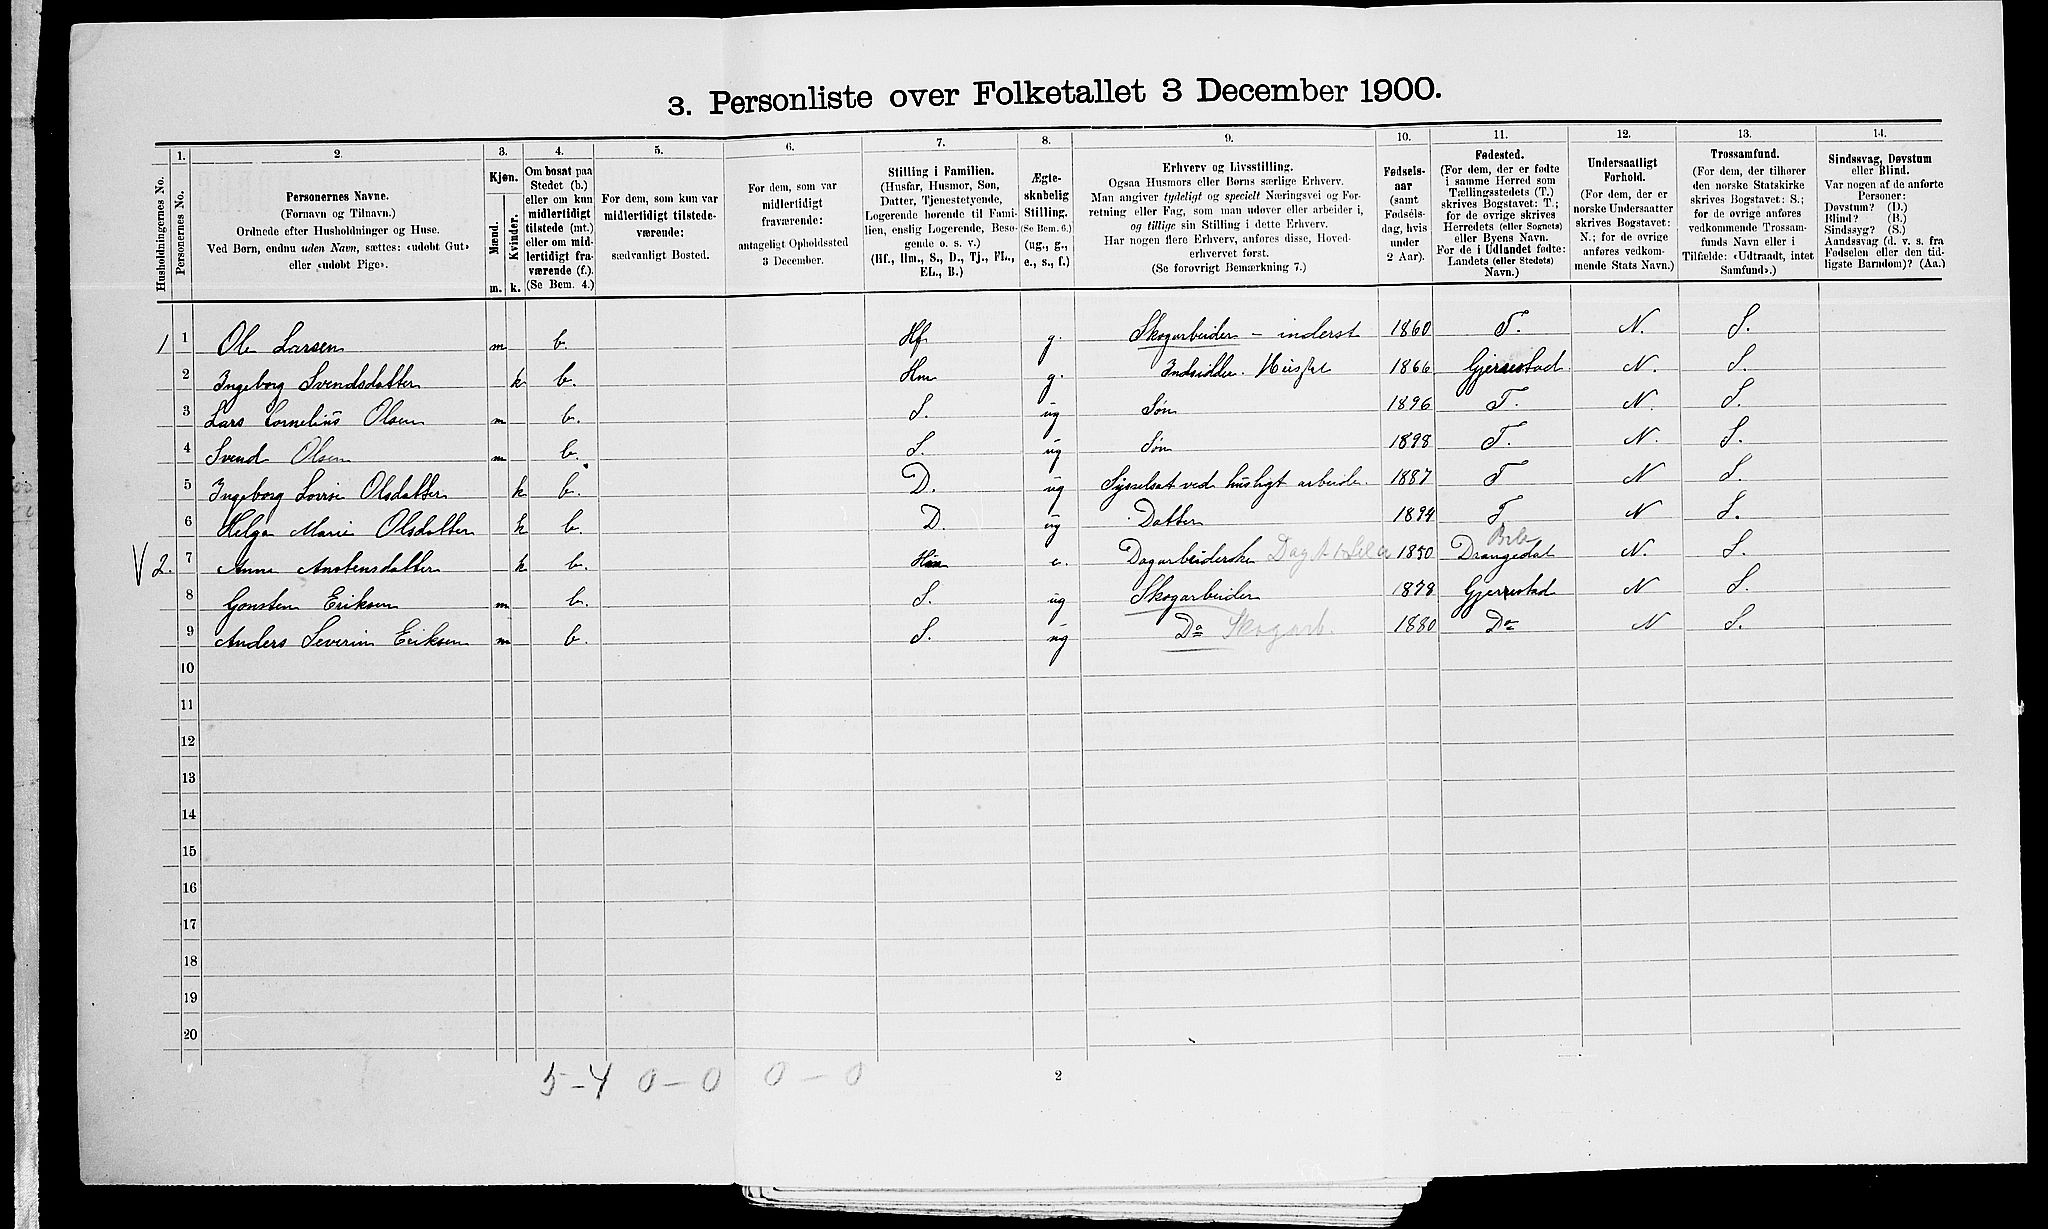 3. Personliste over Folketallet 3 December 1900.
Husholdningernes No.
1. Personernes No.
2. Personernes Navne. (Fornavn og Tilnavn.) Ordnede efter Husholdninger og Huse. Ved Børn, endnu uden Navn, sættes: «udøbt Gut» eller «udøbt Pige».
3. Kjøn. Mænd. m. Kvinder. k.
4. Om bosat paa Stedet (b.) eller om kun midlertidigt tilstede (mt.) eller om midlertidigt fraværende (f.). (Se Bem. 4.)
5. For dem, som kun var midlertidigt tilstedeværende: sædvanligt Bosted.
6. For dem, som var midlertidigt fraværende: antageligt Opholdssted 3 December.
7. Stilling i Familien. (Husfar, Husmor, Søn, Datter, Tjenestetyende, Logerende hørende til Familien, enslig Logerende, Besøgende o. s. v.) (Hf., Hm., S., D., Tj., FL., EL., B.)
8. Ægteskabelig Stilling. (Se Bem. 6.) (ug., g., e., s., f.)
9. Erhverv og Livsstilling. Ogsaa Husmors eller Børns særlige Erhverv. Man angiver tydeligt og specielt Næringsvei og Forretning eller Fag, som man udøver eller arbeider i, og tillige sin Stilling i dette Erhverv. Har nogen flere Erhverv, anføres disse, Hovederhvervet først. (Se forøvrigt Bemærkning 7.)
10. Fødselsaar (samt Fødselsdag, hvis under 2 Aar).
11. Fødested. (For dem, der er fødte i samme Herred som Tællingsstedets (T.) skrives Bogstavet: T.; for de øvrige skrives Herredets (eller Sognets) eller Byens Navn. For de i Udlandet fødte: Landets (eller Stedets) Navn.)
12. Undersaatligt Forhold. (For dem, der er norske Undersaatter skrives Bogstavet: N.; for de øvrige anføres vedkommende Stats Navn.)
13. Trossamfund. (For dem, der tilhører den norske Statskirke skrives Bogstavet: S.; for de øvrige anføres vedkommende Trossamfunds Navn eller i Tilfælde: «Udtraadt, intet Samfund».)
14. Sindssvag, Døvstum eller Blind. Var nogen af de anførte Personer: Døvstum? (D.) Blind? (B.) Sindssyg? (S.) Aandssvag (d. v. s. fra Fødselen eller den tidligste Barndom)? (Aa.)
1 1 Ole Larsen m b. Hf g. Skogarbeider - inderst 1860 T. N. S.
2 Ingeborg Svendsdatter k b. Hm g. Indsidder. 1866 Gjerrestad. N. S.
3 Lars Cornelius Olsen m b. S. ug Søn 1896 T. N. S.
4 Svend Olsen m b. S. ug Søn 1898 T. N. S.
5 Ingeborg Lovise Olsdatter k b. D. ug Sysselsat ved husligt arbeide. 1887 T N S.
6 Helga Marie Olsdatter k b. D. ug Datter 1894 T N S.
V 2. 7 Anne Anstensdatter k b. Hm e. Dagarbeiderske 1850 Drangedal N. S.
8 Gonsten Eriksen m b. S. ug Skogarbeider 1878 Gjerrestad N S.
9 Anders Severin Eriksen m b. S. ug Do Skogarb. 1880 Do N S.
10
11
12
13
14
15
16
17
18
19
20
5-4 0-0 0-0
2